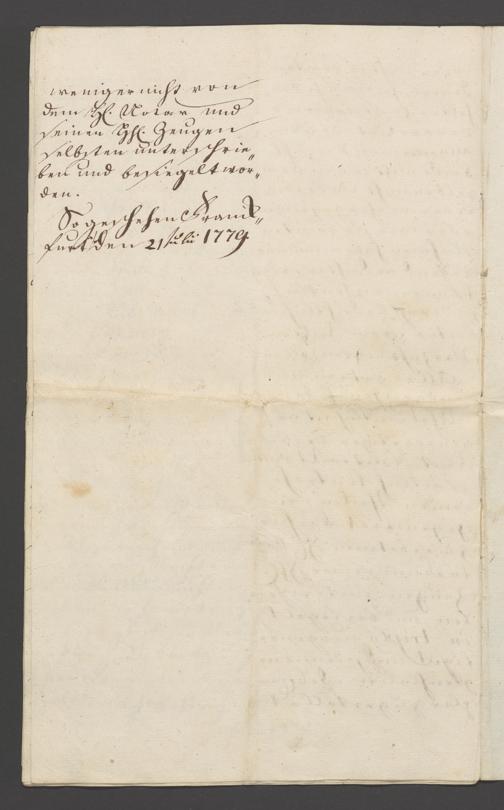 weniger nicht von
dem H. Notar und
seinen HH. Zeugen
selbsten unterschrie„
ben und besiegelt wor„
den.
So geschehen Frank„
furt den 21 Julii 1779